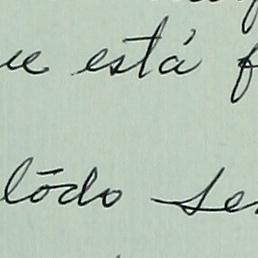 ue está f
lōdo se